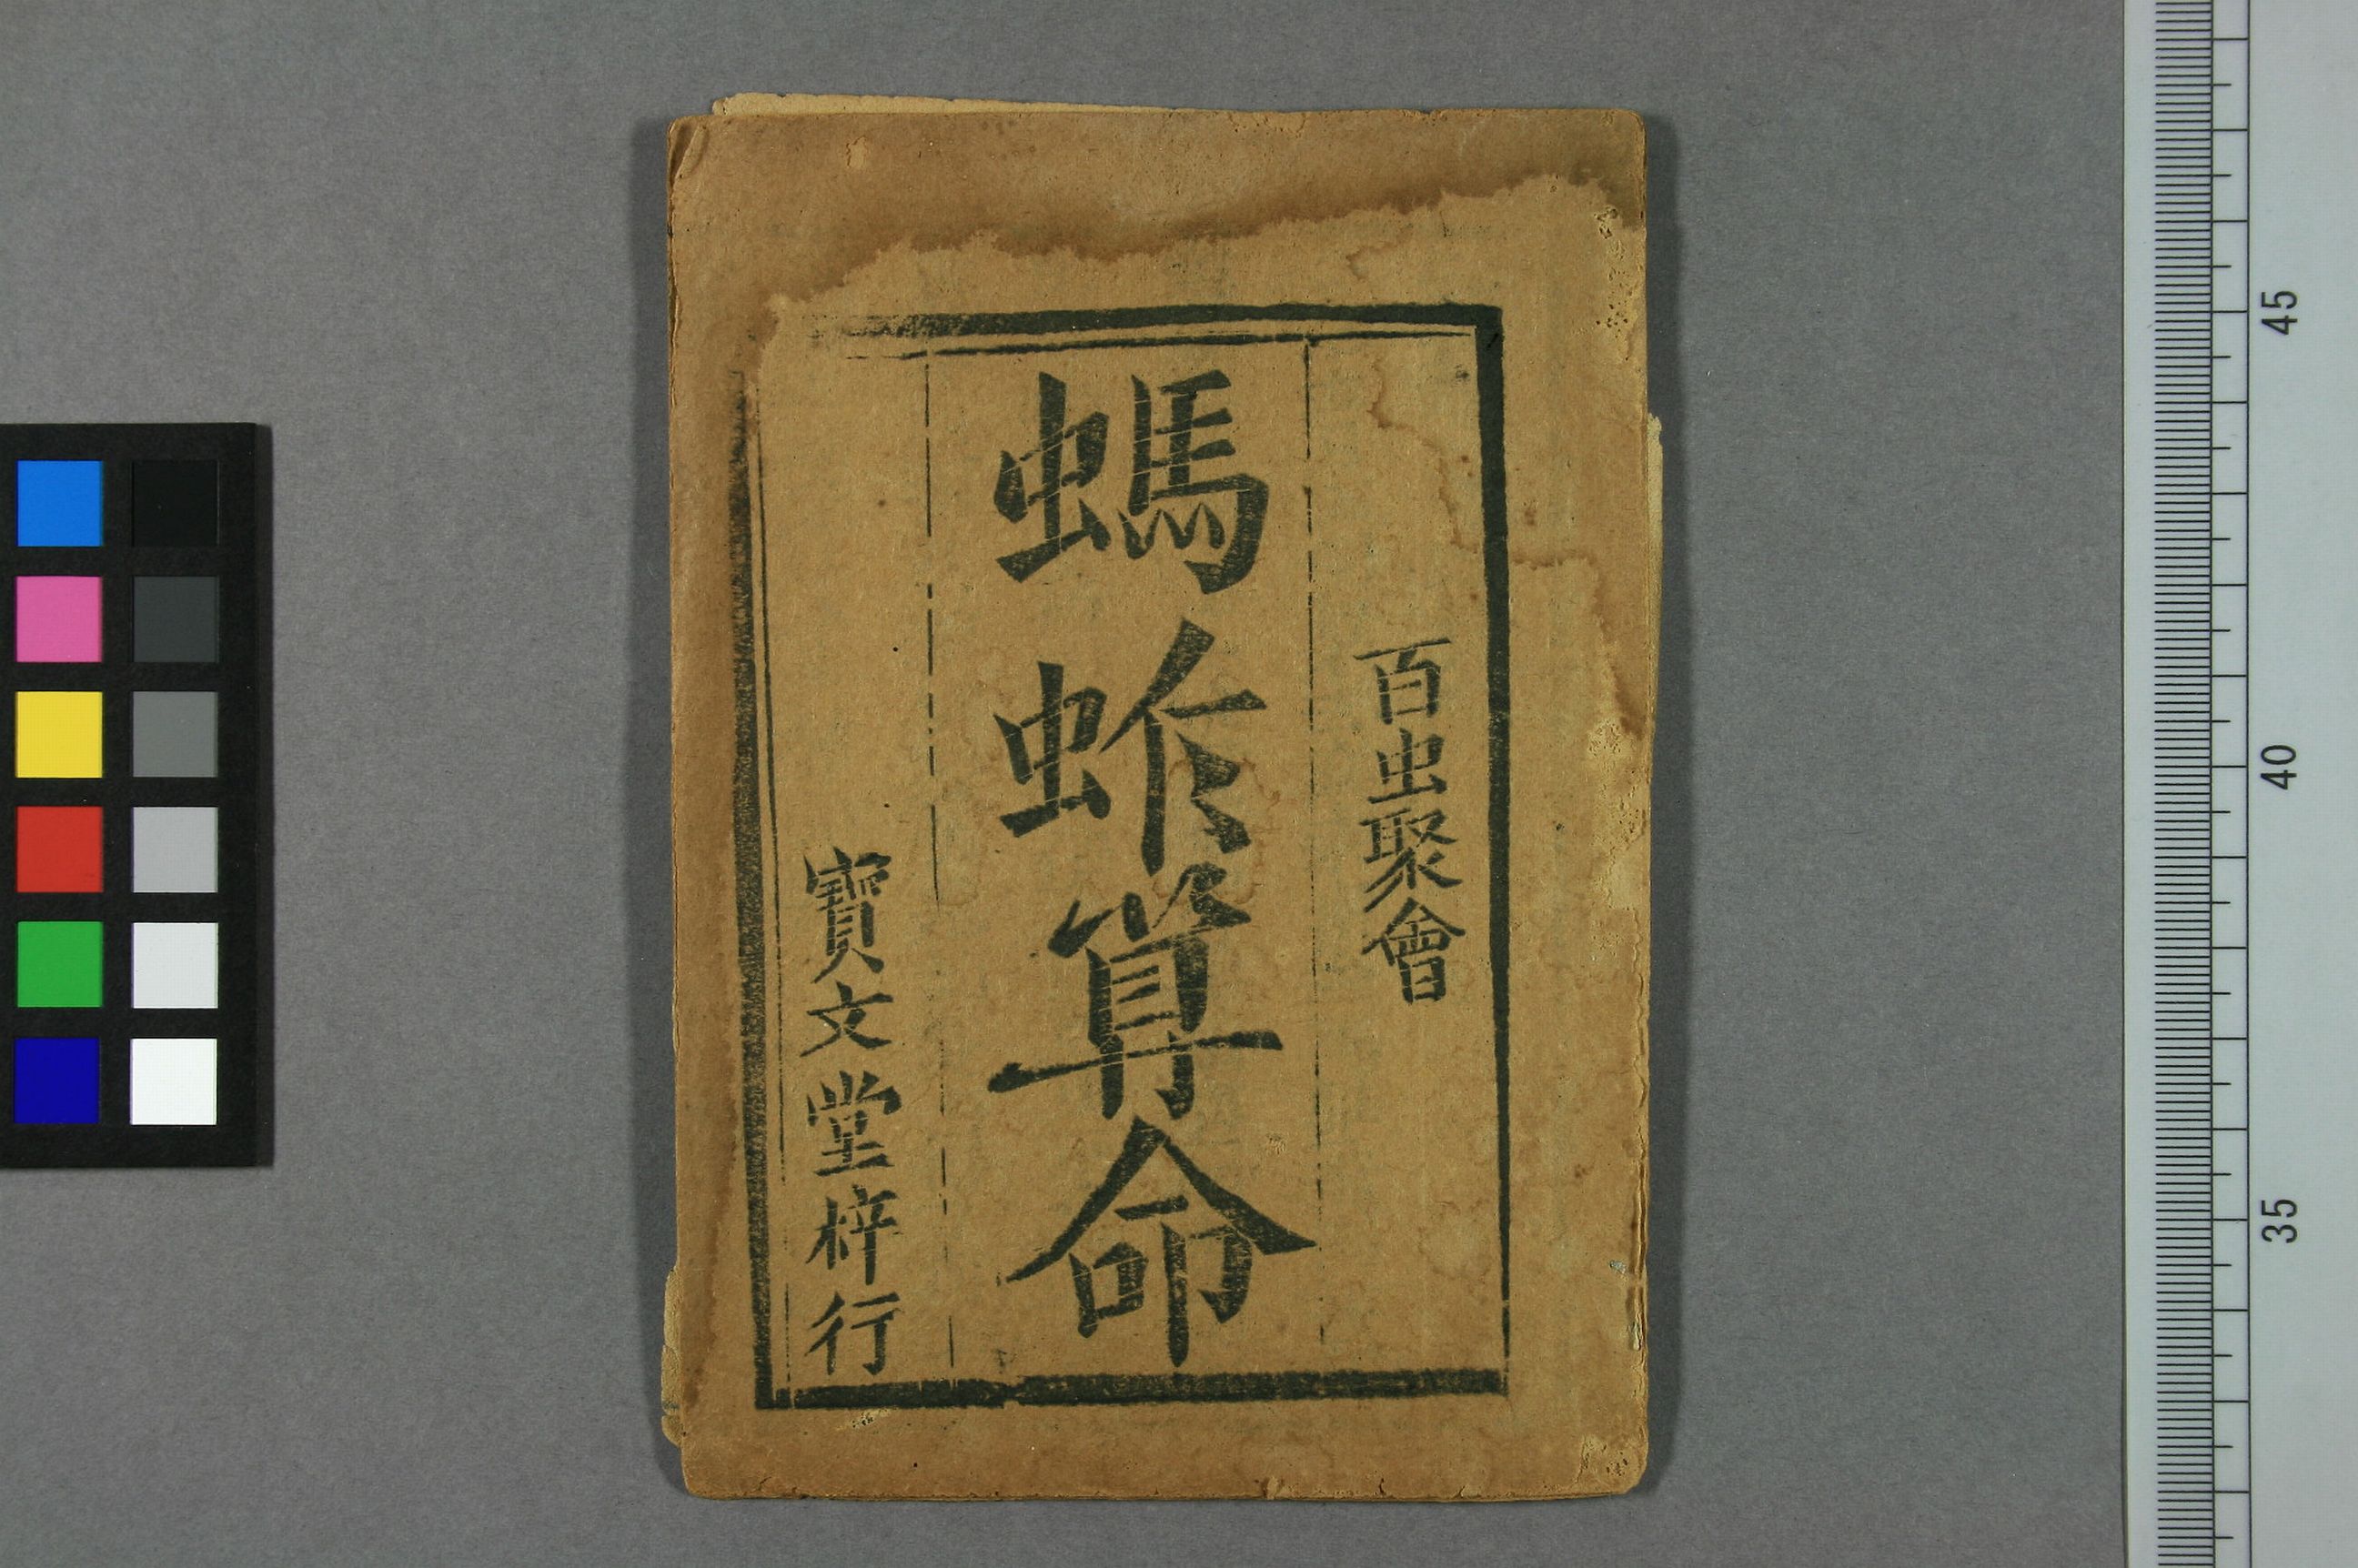 百虫聚會
螞蚱算命
寶文堂梓行
45
40
35